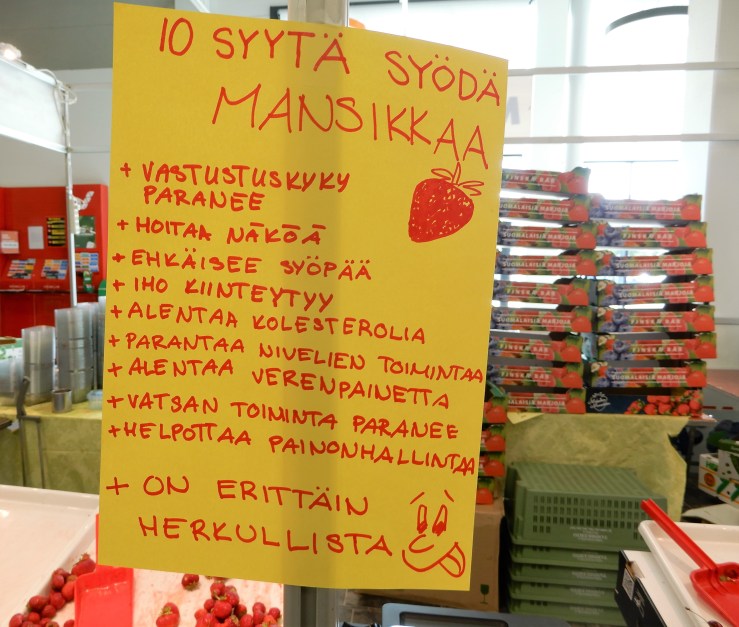 10 SYYTÄ SYÖDÄ
MANSIKKAA
+ VASTUSTUSKYKY
PARANEE
+ HOITAA NÄKÖÄ
+ EHKÄISEE SYÖPÄÄ
+ IHO KIINTEYTYY
+ ALENTAA KOLESTEROLIA
+ PARANTAA NIVELIEN TOIMINTAA
+ ALENTAA VERENPAINETTA
+ VATSAN TOIMINTA PARANEE
+ HELPOTTAA PAINONHALLINTAA
+ ON ERITTÄIN
HERKULLISTA
SUOMALAISIA MARJOJA
SUOMALAISIA MARJOJA
SUOMALAISIA MARJOJA
SUOMALAISIA MARJOJA